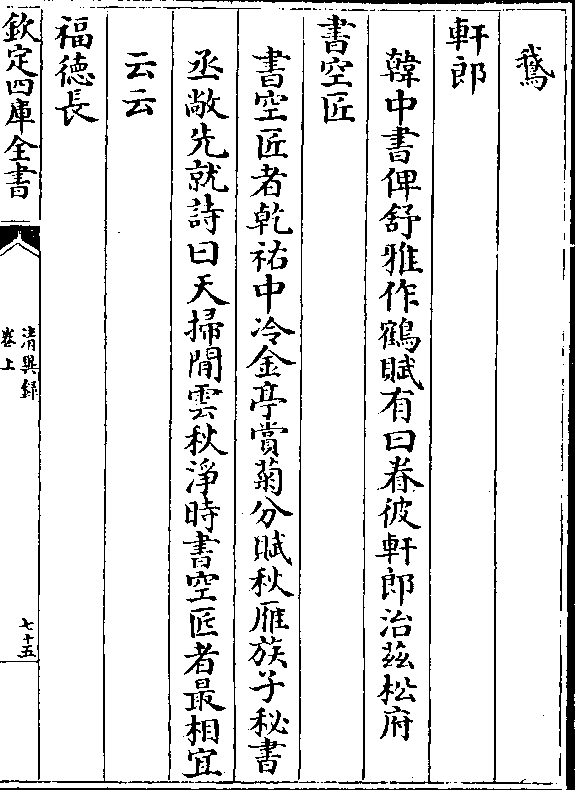 鵞
軒郎
韓中書俾舒雅作鶴賦有曰眷彼軒郎治茲松府
書空匠
書空匠者乾祐中冷金亭賞菊分賦秋雁族子秘書
丞敞先就詩曰天掃閒雲秋淨時書空匠者最相宜
云云
福德長
欽定四庫全書
清異録
卷上
七十五